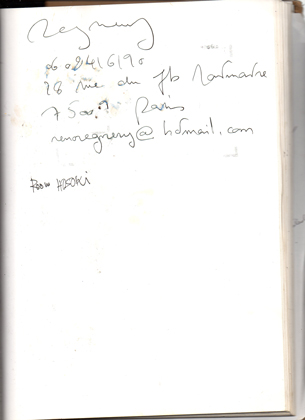 Regnery
06 0241619
28 rue du fb Montmartre
75009 Paris
renoregnery@hotmail.com